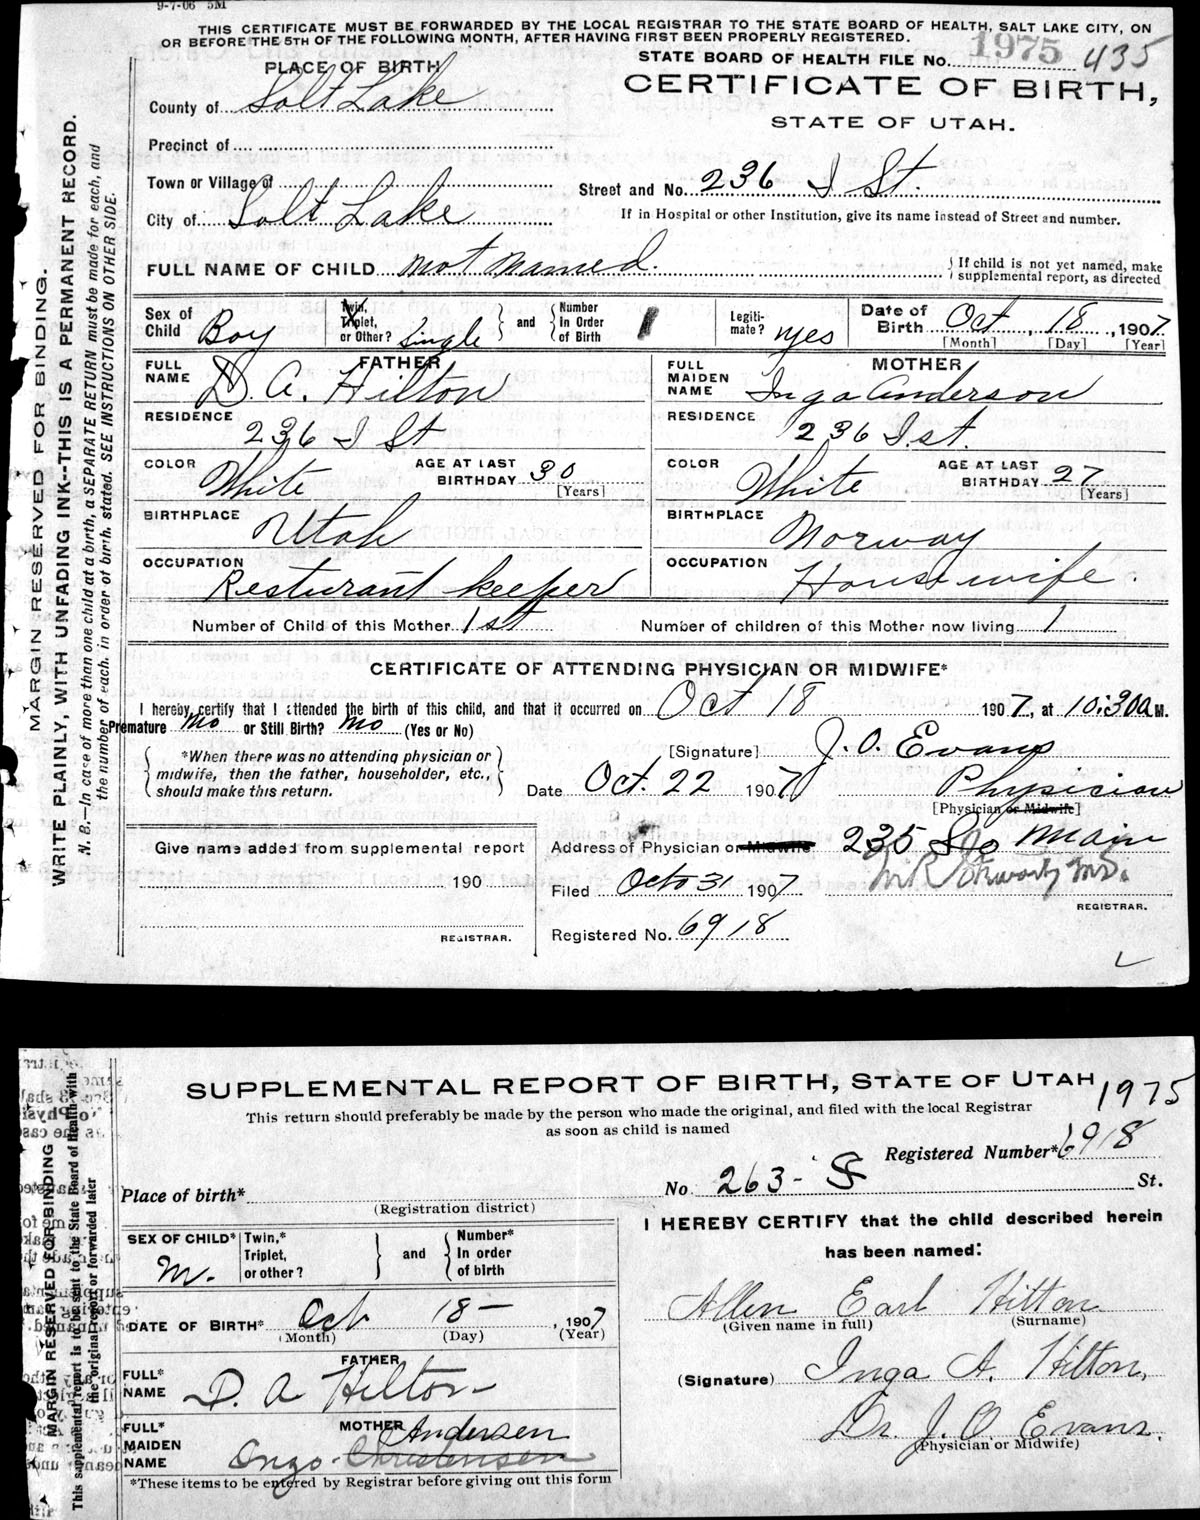 9-7-06 5M
THIS CERTIFICATE MUST BE FORWARDED BY THE LOCAL REGISTRAR TO THE STATE BOARD OF HEALTH, SALT LAKE CITY, ON
OR BEFORE THE 5TH OF THE FOLLOWING MONTH, AFTER HAVING FIRST BEEN PROPERLY REGISTERED.
STATE BOARD OF HEALTH FILE No. 1975 435
CERTIFICATE OF BIRTH,
STATE OF UTAH.
PLACE OF BIRTH
County of Salt Lake
Precinct of
Town or Village of
City of Salt Lake
Street and No. 236 I St.
If in Hospital or other Institution, give its name instead of Street and number.
FULL NAME OF CHILD Not Named. { If child is not yet named, make
supplemental report, as directed
Sex of Child Boy
Twin, Triplet, or Other? Single } and { Number In Order of Birth 1
Legitimate? yes
Date of Birth Oct, 18, 1907
[Month] [Day] [Year]
FATHER
FULL NAME D. A. Hilton
RESIDENCE 236 I St
COLOR White AGE AT LAST BIRTHDAY 30 [Years]
BIRTHPLACE Utah
OCCUPATION Resturant keeper
MOTHER
FULL MAIDEN NAME Inga Anderson
RESIDENCE 236 I. st.
COLOR White AGE AT LAST BIRTHDAY 27 [Years]
BIRTHPLACE Norway
OCCUPATION House wife.
Number of Child of this Mother 1st Number of children of this Mother now living 1
CERTIFICATE OF ATTENDING PHYSICIAN OR MIDWIFE*
I hereby certify that I attended the birth of this child, and that it occurred on Oct 18 1907, at 10:30 A M.
Premature No or Still Birth? No (Yes or No)
{ *When there was no attending physician or
midwife, then the father, householder, etc.,
should make this return. }
[Signature] J. O. Evans
Date Oct. 22 1907 Physician
[Physician or Midwife]
Address of Physician or Midwife 235 So Main
Filed Octo 31 1907
REGISTRAR.
Registered No. 6918
Give name added from supplemental report
190
REGISTRAR.
MARGIN RESERVED FOR BINDING.
WRITE PLAINLY, WITH UNFADING INK--THIS IS A PERMANENT RECORD.
N. B.—In case of more than one child at a birth, a SEPARATE RETURN must be made for each, and
the number of each, in order of birth, stated. SEE INSTRUCTIONS ON OTHER SIDE.
SUPPLEMENTAL REPORT OF BIRTH, STATE OF UTAH 1975
This return should preferably be made by the person who made the original, and filed with the local Registrar
as soon as child is named
Registered Number* 6918
Place of birth*
(Registration district)
No. 263- S St.
SEX OF CHILD* M.
Twin,* Triplet, or other? } and { Number* In order of birth
DATE OF BIRTH* Oct 18- , 1907
(Month) (Day) (Year)
FATHER
FULL* NAME D. A Hilton
MOTHER
FULL* MAIDEN NAME Inga Christensen Andersen
*These items to be entered by Registrar before giving out this form
I HEREBY CERTIFY that the child described herein
has been named:
Allen Earl Hilton
(Given name in full) (Surname)
(Signature) Inga A. Hilton,
Dr. J. O. Evans.
(Physician or Midwife)
MARGIN RESERVED FOR BINDING
This supplemental report is to be sent to the State Board of Health with
the original report or forwarded later